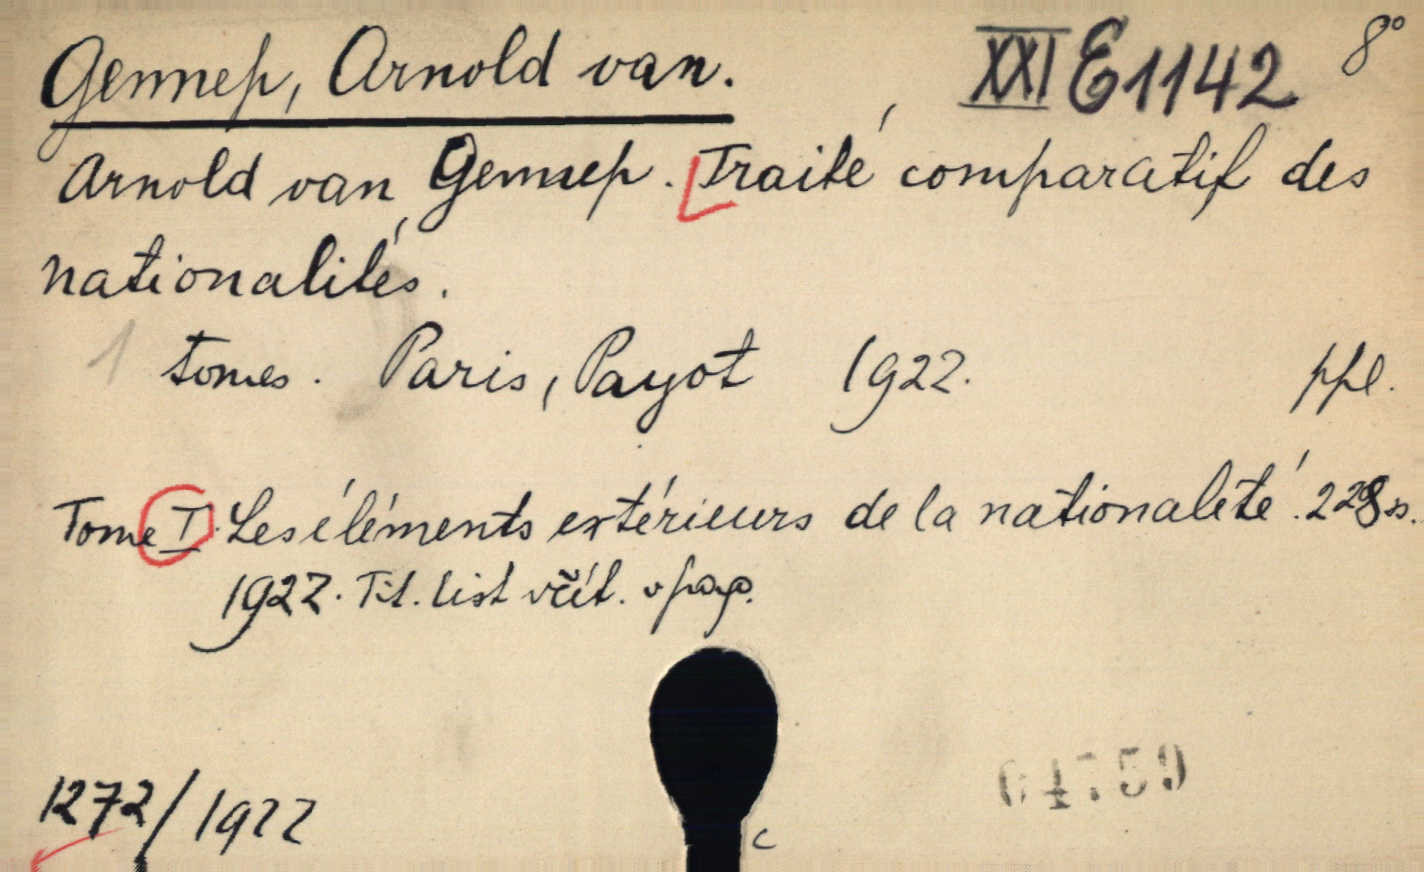 Gennep, Arnold van. XXI E 1142 8°
Arnold van Gennep. Traité comparatif des
nationalités.
1 tomes. Paris, Payot 1922. ppl.
Tome I. Les éléments extérieurs de la nationalité. 228 ss.
1922. Tit. list včít. v pag.
1272/1922
c